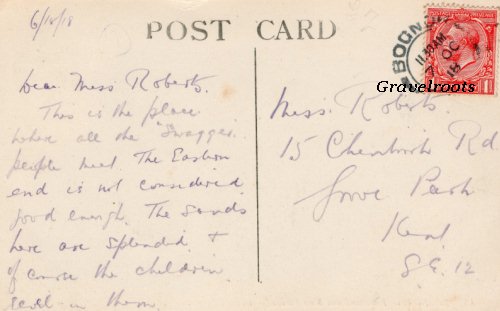 6/10/18
POST CARD
BOGNOR
11.30 AM
7 OC
18
Gravelroots
Dear Miss Roberts.
This is the place
where all the "swagger"
people meet. The Eastern
end is not considered
good enough. The sands
here are splendid &
of course the children
revel in them.
Miss. Roberts.
15 Rd
Grove Park
Kent
S.E. 12